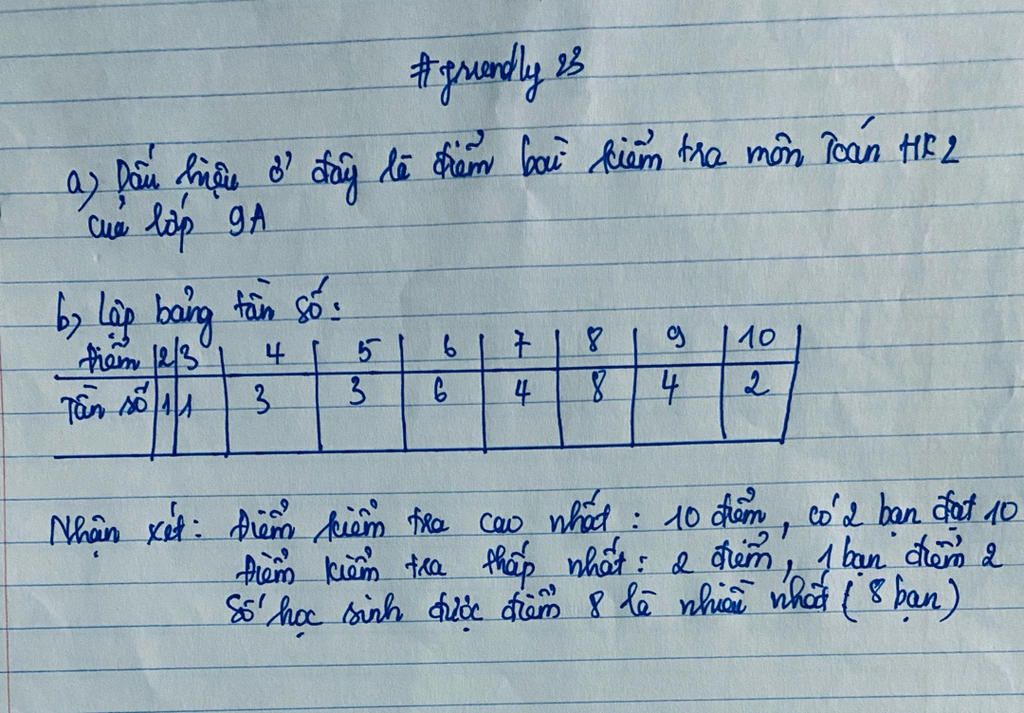 #friendly 23
a) Dấu hiệu ở đây là điểm bài kiểm tra môn Toán HK2
của lớp 9A
b) Lập bảng tần số:
Điểm 2 3 4 5 6 7 8 9 10
Tần số 1 1 3 3 6 4 8 4 2
Nhận xét: Điểm kiểm tra cao nhất: 10 điểm, có 2 bạn đạt 10
Điểm kiểm tra thấp nhất: 2 điểm, 1 bạn điểm 2
Số học sinh được điểm 8 là nhiều nhất (8 bạn)